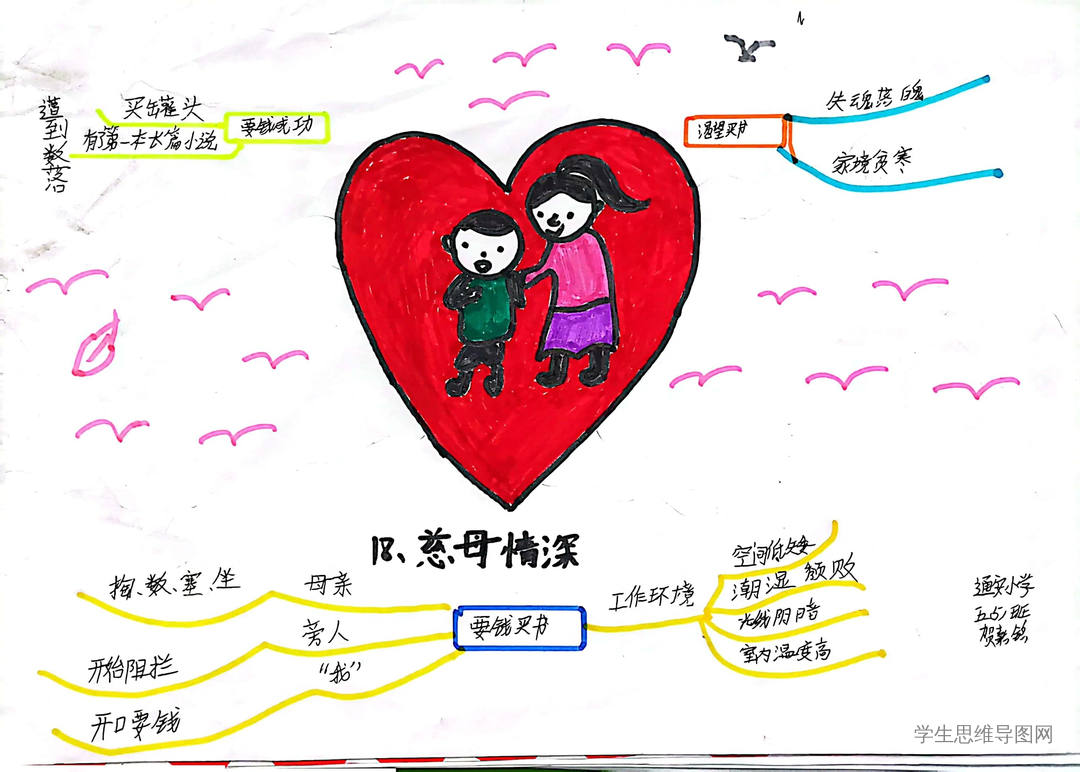 遭到数落
买出罐头
有第一本长篇小说
要钱成功
渴望买书
失魂落魄
家境贫寒
18、慈母情深
掏、数、塞、坐
母亲
旁人
开始阻拦
“我”
开口要钱
要钱买书
工作环境
空间低矮
潮湿 颓败
光线阴暗
室内温度高
通实小学
五(5)班
学生思维导图网